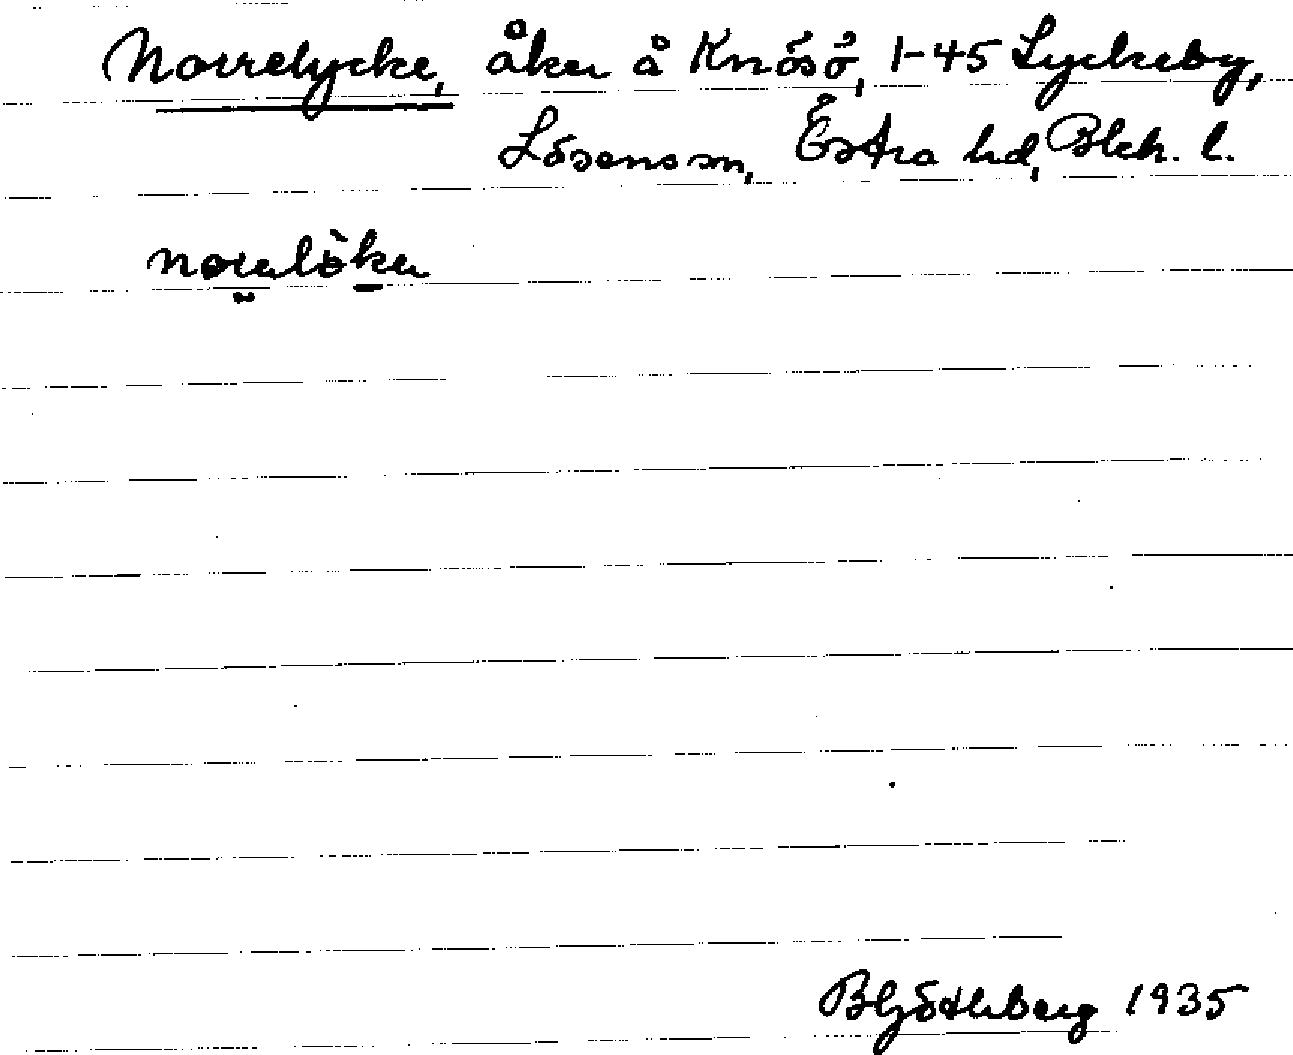 Norrelycke, åker å Knösö, 1-45 Lyckeby,
Lösens sn, Östra hd, Blek. l.
norelöker
BGötlberg 1935